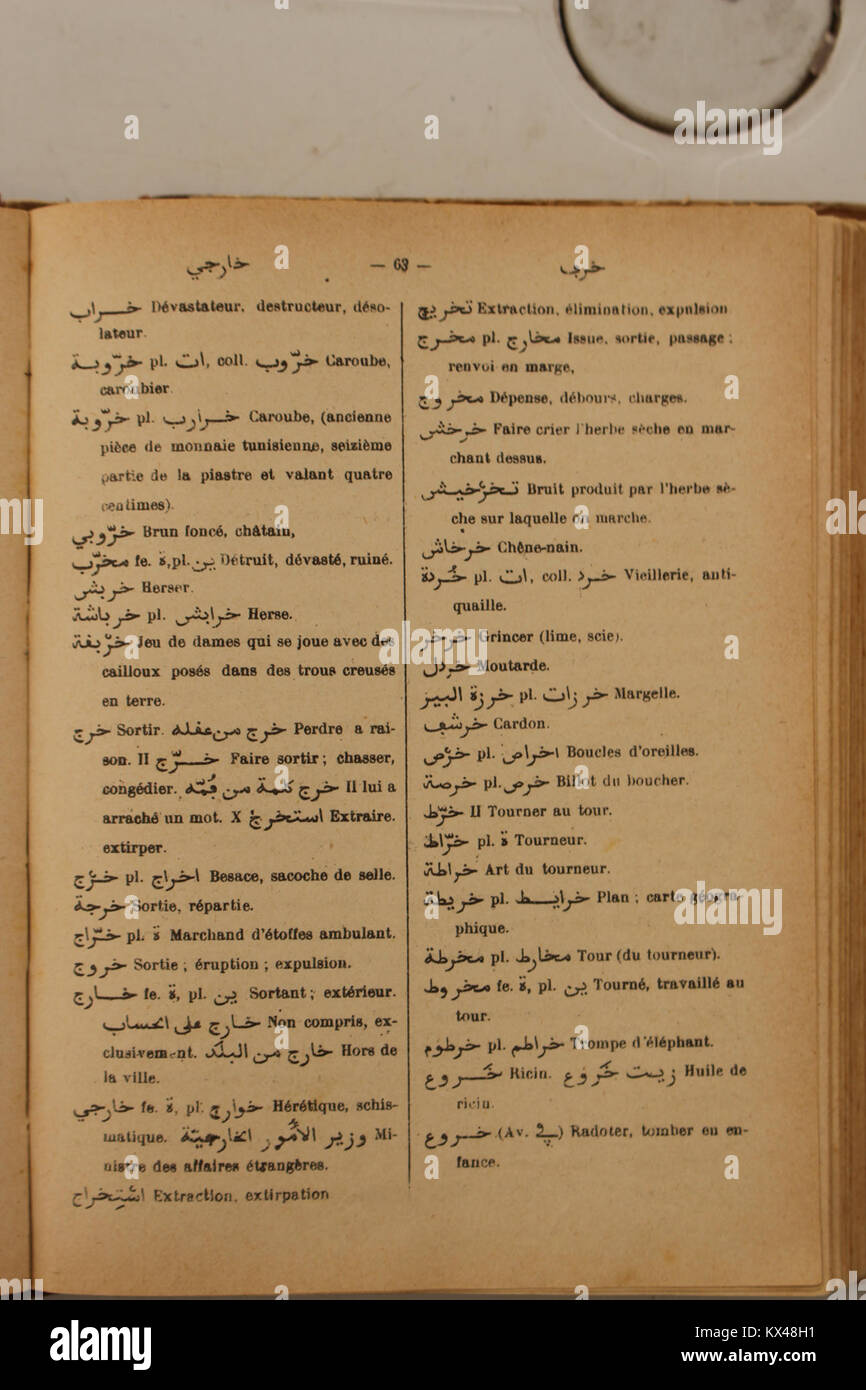 خارجي — 63 — خرب
خـــراب Dévastateur, destructeur, déso-
lateur.
خرّوبة pl. ات, coll. خرّوب Caroube,
caroubier.
خرّوبة pl. خـرارب Caroube, (ancienne
pièce de monnaie tunisienne, seizième
partie de la piastre et valant quatre
centimes).
خرّوبي Brun foncé, châtain,
مخرّب fe. ة, pl. ين Détruit, dévasté, ruiné.
خربش Herser.
خرباشة pl. خرابش Herse.
خرّبقة Jeu de dames qui se joue avec des
cailloux posés dans des trous creusés
en terre.
خرج Sortir. خرج من عقله Perdre a rai-
son. II خـــرّج Faire sortir; chasser,
congédier. خرج كلمة من Il lui a
arraché un mot. X استخرج Extraire.
extirper.
خرج pl. اخراج Besace, sacoche de selle.
خرجة Sortie, répartie.
خرّاج pl. ة Marchand d'étoffes ambulant.
خروج Sortie; éruption; expulsion.
خـــارج fe. ة, pl. ين Sortant; extérieur.
خـارج على الحساب Non compris, ex-
clusivement. خارج من البلد Hors de
la ville.
خارجي fe. ة, pl. خوارج Hérétique, schis-
matique. وزير الأمور الخارجيّة Mi-
nistre des affaires étrangères.
استخراج Extraction, extirpation
تخريج Extraction, élimination, expulsion
مخـرج pl. مخارج Issue, sortie, passage;
renvoi en marge,
مخروج Dépense, débours, charges.
خرخش Faire crier l'herbe sèche en mar-
chant dessus.
تـخرخيش Bruit produit par l'herbe sè-
che sur laquelle on marche.
خرخاش Chêne-nain.
خردة pl. ات, coll. خـرد Vieillerie, anti-
quaille.
خرخر Grincer (lime, scie).
خردل Moutarde.
خرزة البير pl. خرزات Margelle.
خرشف Cardon.
خرص pl. اخراص Boucles d'oreilles.
خرصة pl. خرص Billot du boucher.
خرّط II Tourner au tour.
خرّاط pl. ة Tourneur.
خراطة Art du tourneur.
خريطة pl. خرايـــط Plan; carte géogra-
phique.
مخرطة pl. مخارط Tour (du tourneur).
مخروط fe. ة, pl. ين Tourné, travaillé au
tour.
خرطوم pl. خراطم Trompe d'éléphant.
خـــروع Ricin. زيـت خروع Huile de
ricin.
خـــروع (Av. في) Radoter, tomber en en-
fance.
alamy
Image ID: KX48H1
www.alamy.com